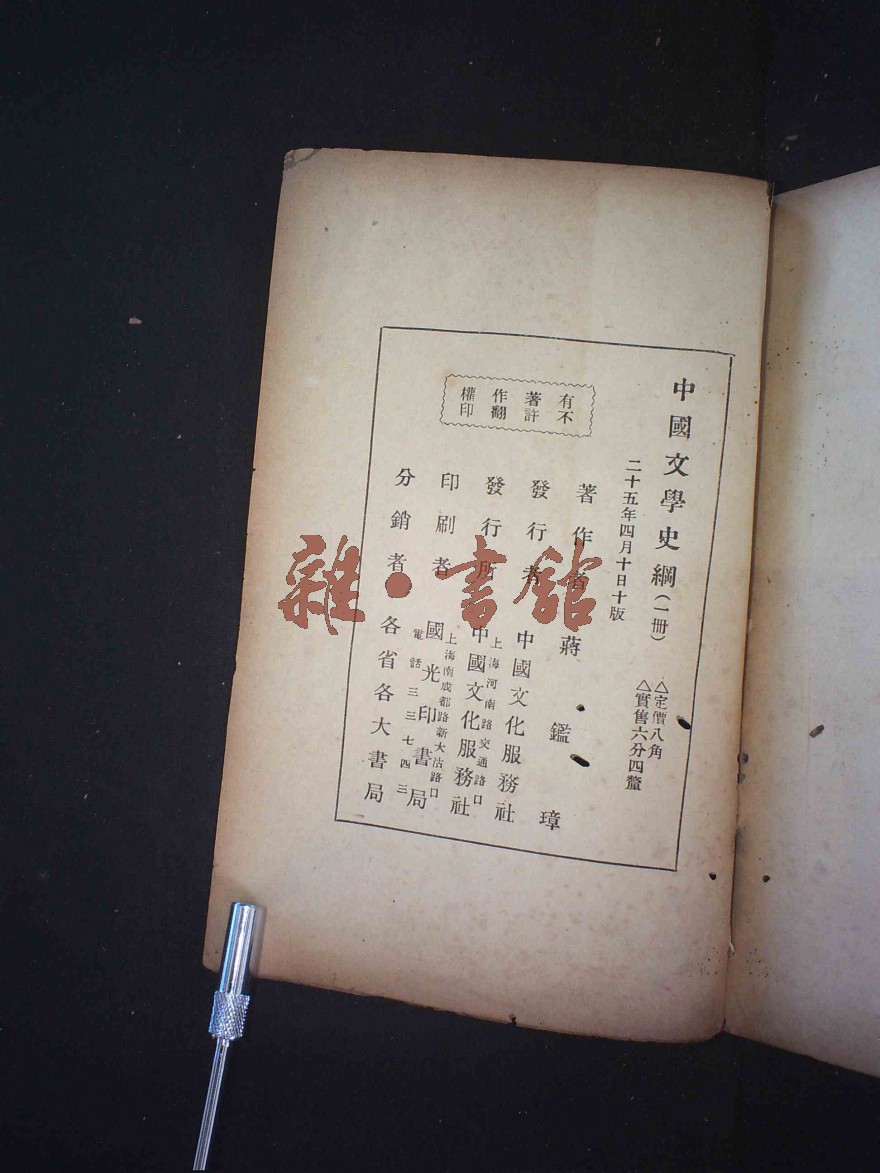 中國文學史綱(一冊)
△定價八角
△實售六分四釐
二十五年四月十日十版
著作者 蔣鑑璋
發行者 中國文化服務社
上海河南路交通路口
發行所 中國文化服務社
上海南成都路新大沽路口
印刷者 國光印書局
電話三三七四三
分銷者 各省各大書局
有著作權
不許翻印
雜·書館